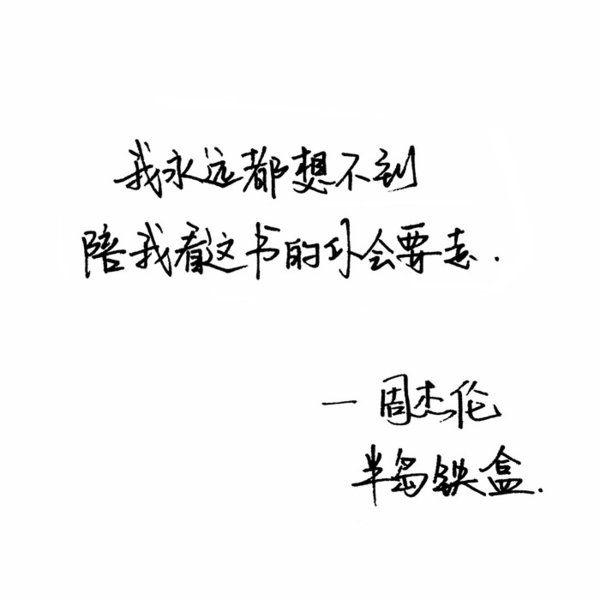 我永远都想不到
陪我看这书的你会要走.
—周杰伦
半岛铁盒.